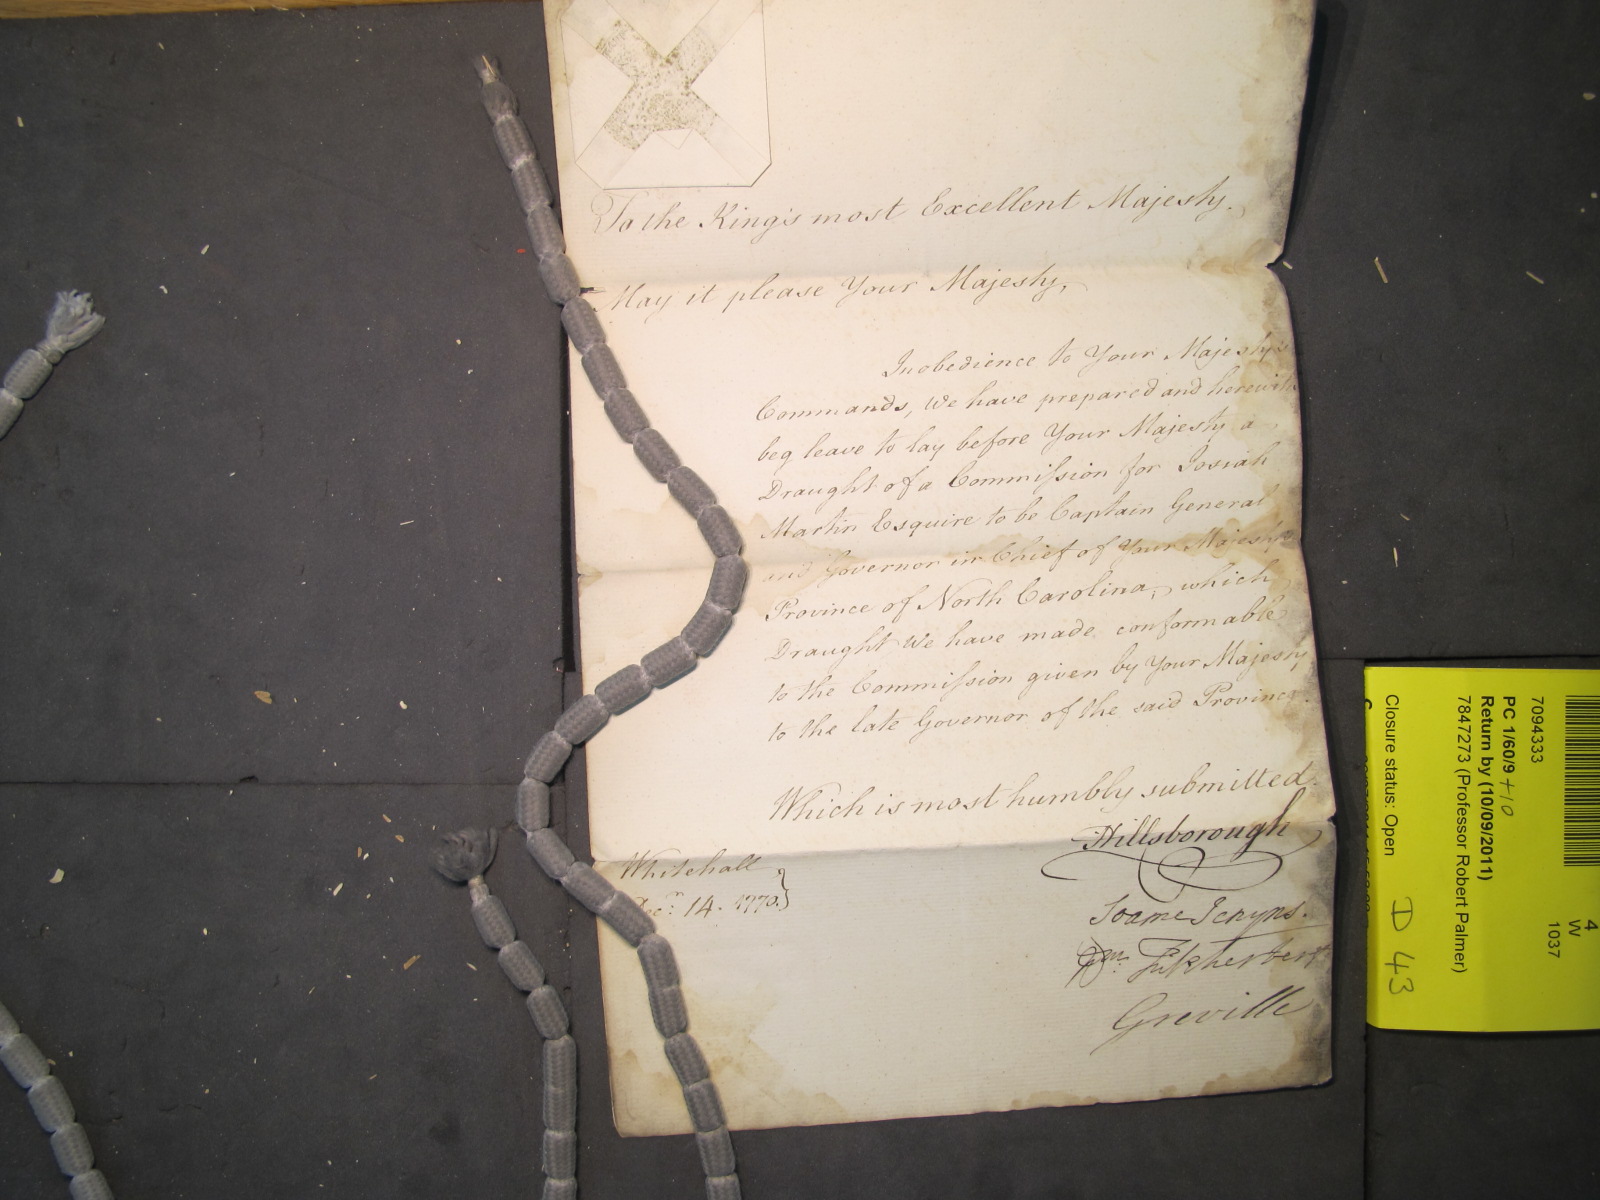 To the King's most Excellent Majesty.
May it please Your Majesty,
In obedience to Your Majesty's
Commands, we have prepared and herewith
beg leave to lay before Your Majesty a
Draught of a Commission for Josiah
Martin Esquire to be Captain General
and Governor in Chief of Your Majesty's
Province of North Carolina, which
Draught we have made conformable
to the Commission given by Your Majesty
to the late Governor of the said Province.
Which is most humbly submitted.
Hillsborough
Soame Jenyns.
Wm: Fitzherbert
Greville
Whitehall
Decr: 14. 1770.
4
W
1037
7094333
PC 1/60/9 +10
Return by (10/09/2011)
7847273 (Professor Robert Palmer)
Closure status: Open
D 43